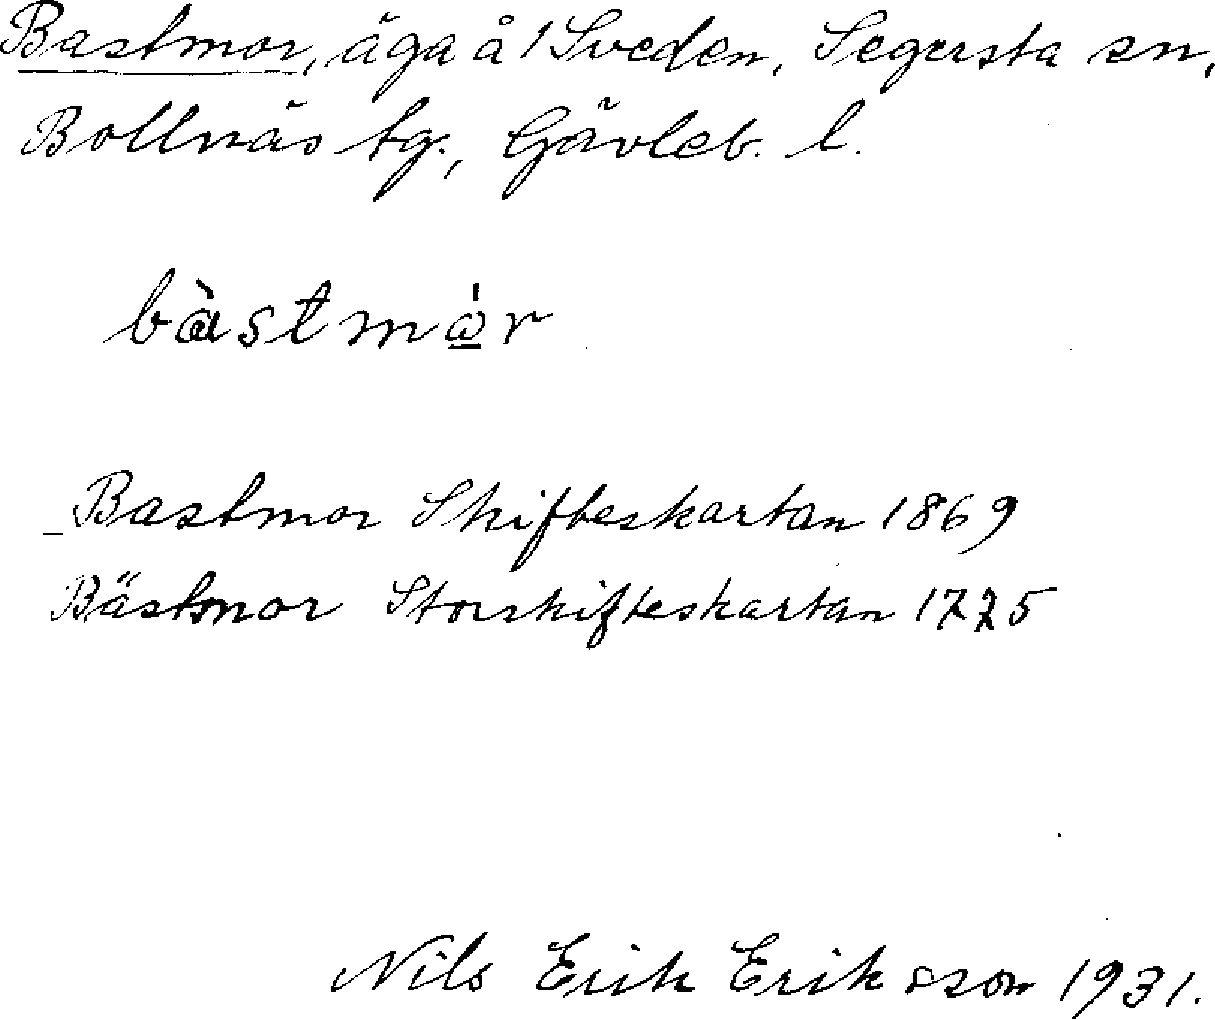 Bastmor, äga å 1 Sveden, Segersta sn,
Bollnäs tg., Gävleb. l.
bàstmώ̲r
Bastmor Skifteskartan 1869
Bästmor Storskifteskartan 1775
Nils Erik Eriksson 1931.